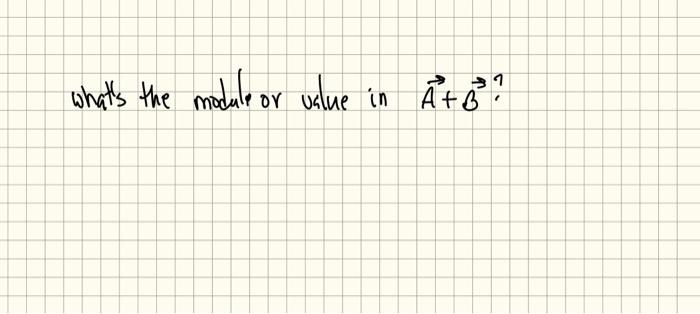 what's the module or value in A⃗ + B⃗ ?